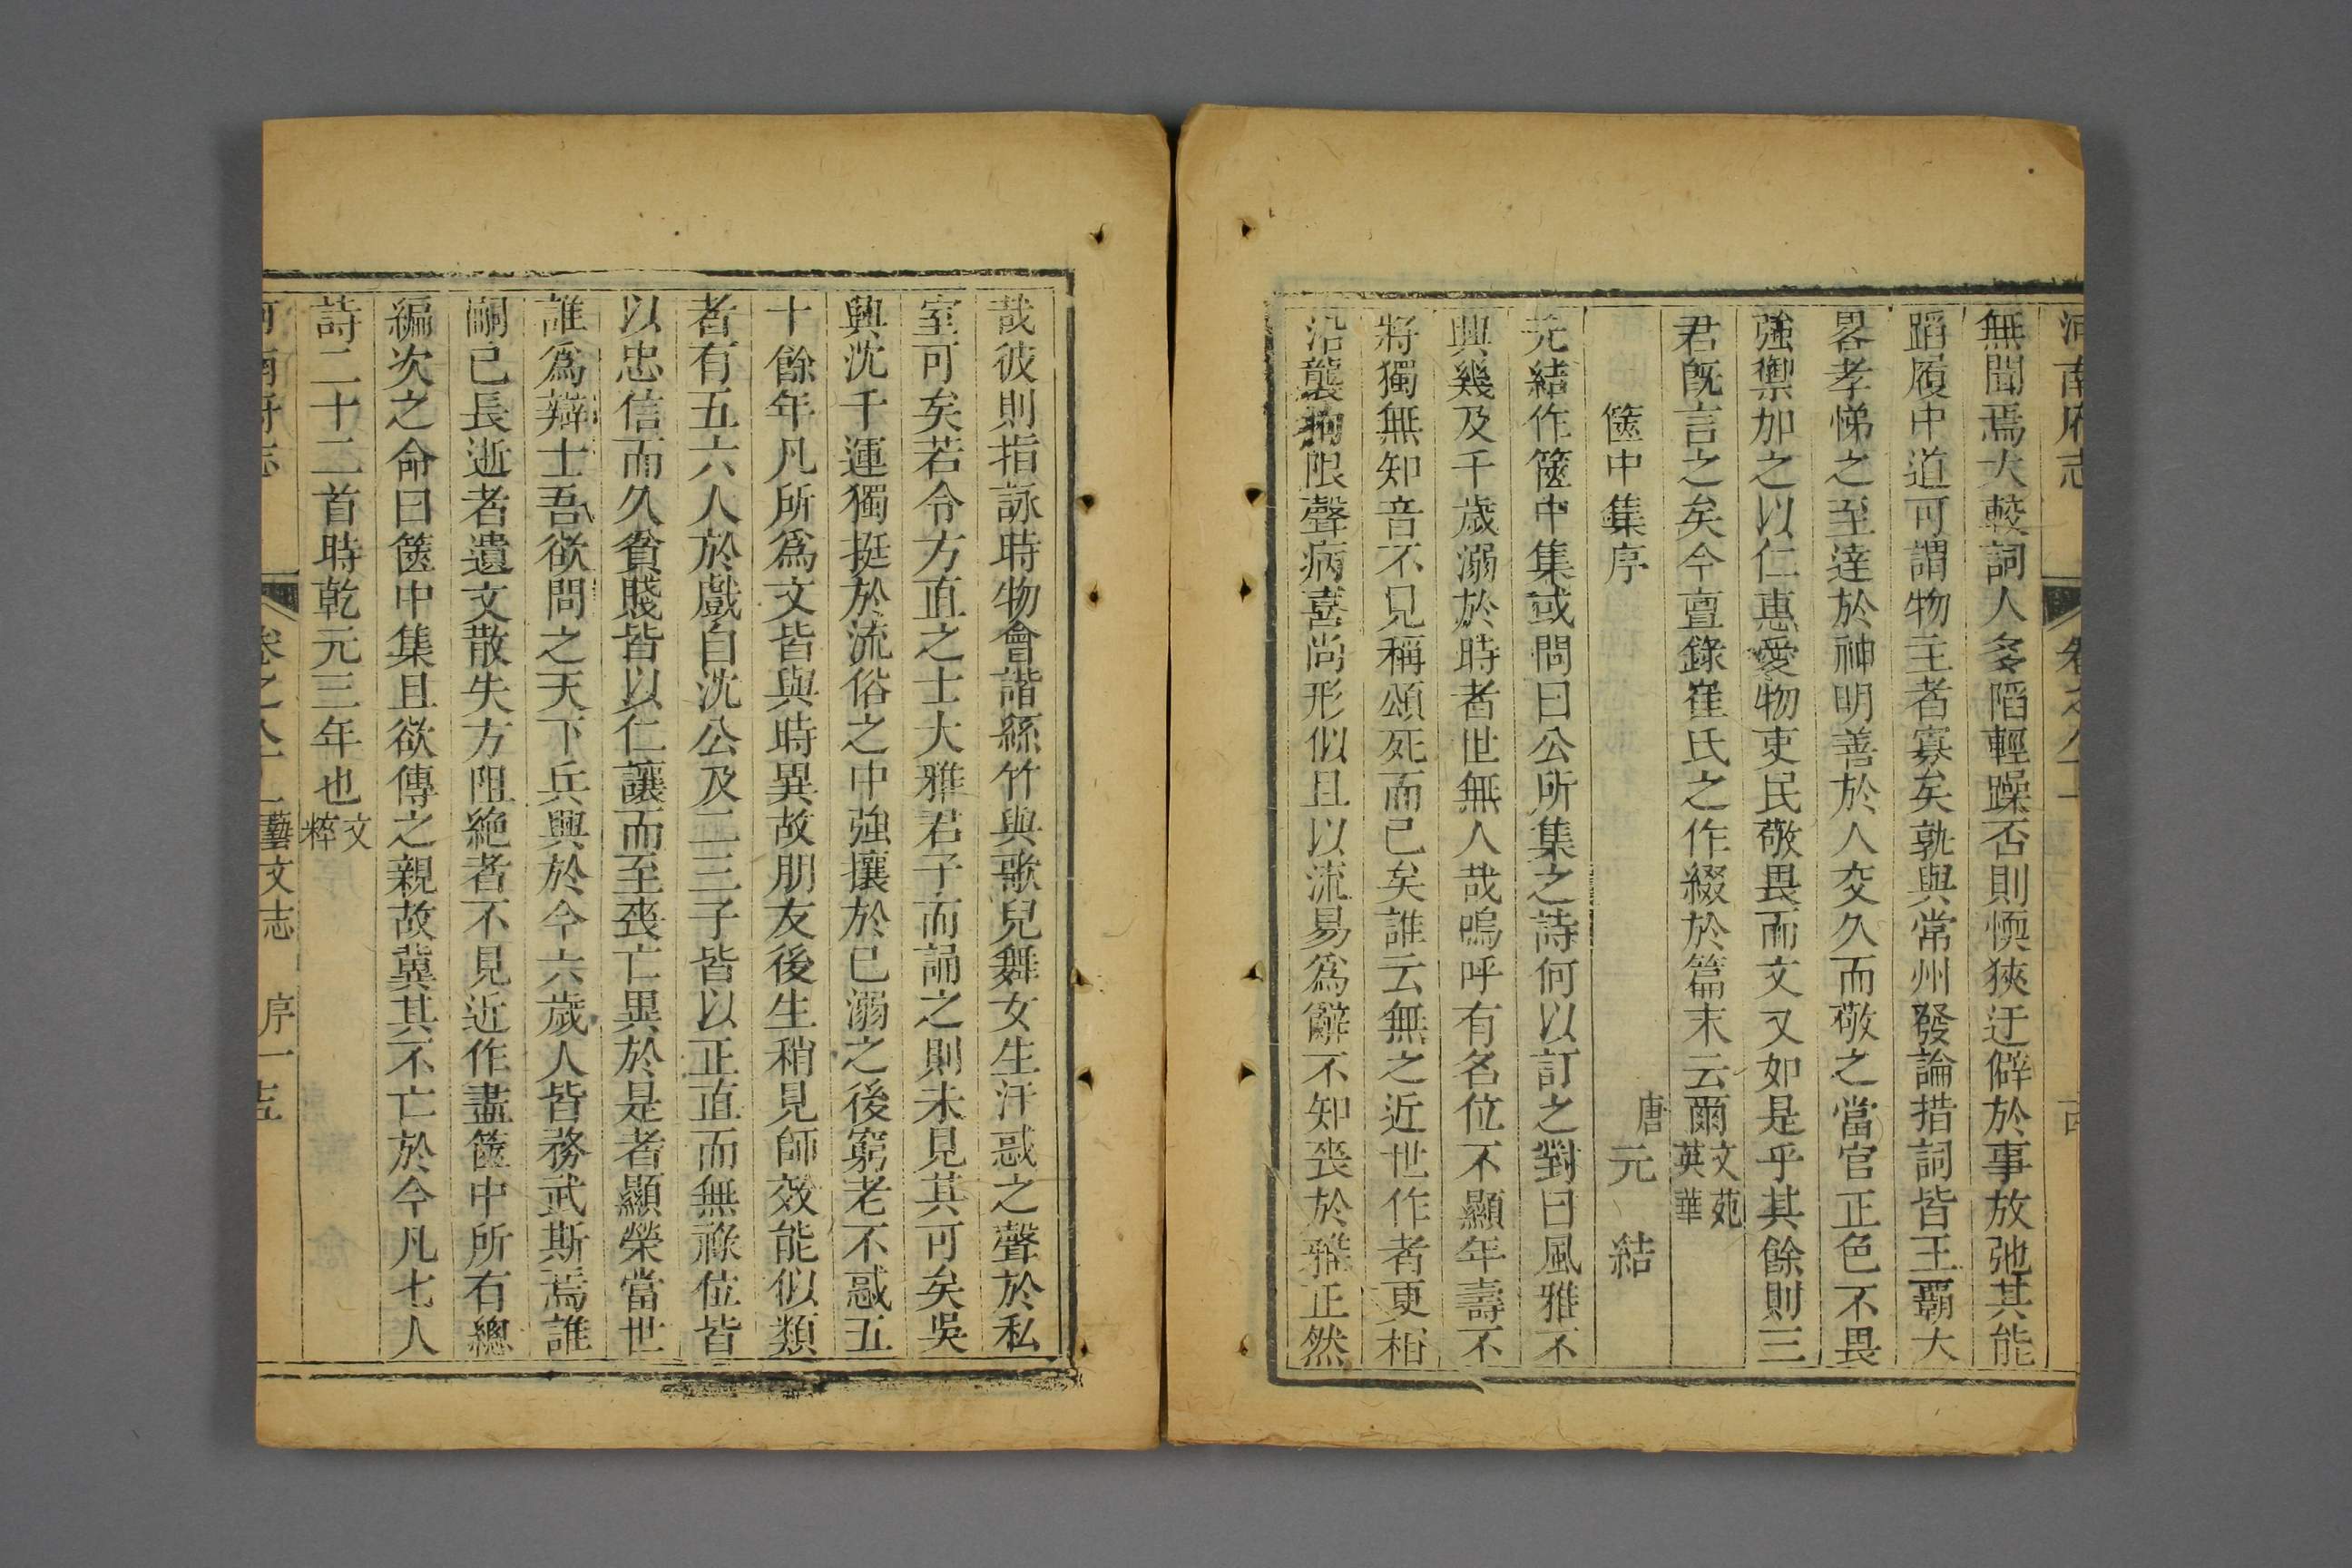 河南府志 卷之八十一
無聞焉大較詞人多陷輕躁否則愞狹迂僻於事放弛其能
蹈履中道可謂物主者寡矣孰與常州發論措詞皆王霸大
畧孝悌之至達於神明善於人交久而敬之當官正色不畏
強禦加之以仁惠愛物吏民敬畏而文又如是乎其餘則三
君旣言之矣今亶錄崔氏之作綴於篇末云爾文苑英華
篋中集序
唐元 結
元結作篋中集或問曰公所集之詩何以訂之對曰風雅不
興幾及千歲溺於時者世無人哉嗚呼有名位不顯年壽不
將獨無知音不見稱頌死而已矣誰云無之近世作者更相
沿襲拘限聲病喜尚形似且以流易爲辭不知喪於雅正然
哉彼則指詠時物會諧絲竹與歌兒舞女生汙惑之聲於私
室可矣若令方直之士大雅君子而誦之則未見其可矣吳
興沈千運獨挺於流俗之中強攘於已溺之後窮老不惑五
十餘年凡所爲文皆與時異故朋友後生稍見師效能似類
者有五六人於戲自沈公及二三子皆以正直而無祿位皆
以忠信而久貧賤皆以仁讓而至喪亡異於是者顯榮當世
誰爲辯士吾欲問之天下兵興於今六歲人皆務武斯焉誰
嗣已長逝者遺文散失方阻絶者不見近作盡篋中所有總
編次之命曰篋中集且欲傳之親故冀其不亡於今凡七人
詩二十二首時乾元三年也文粹
河南府志 卷之八十一藝文志 序一